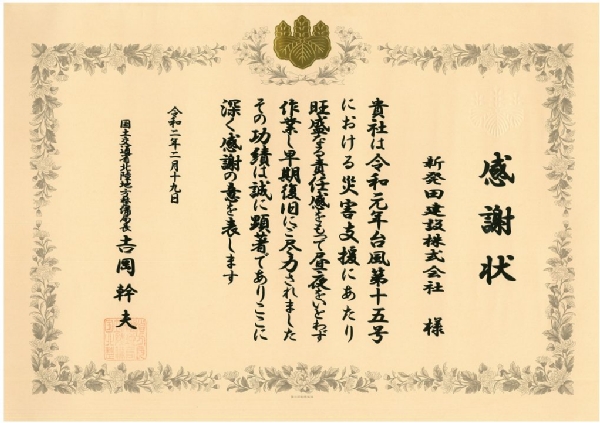 感謝状
新発田建設株式会社 様
貴社は令和元年台風第十五号
における災害支援にあたり
旺盛なる責任感をもって昼夜をいとわず
作業し早期復旧にご尽力されました
その功績は誠に顕著でありここに
深く感謝の意を表します
令和二年二月十九日
国土交通省北陸地方整備局長 吉岡幹夫